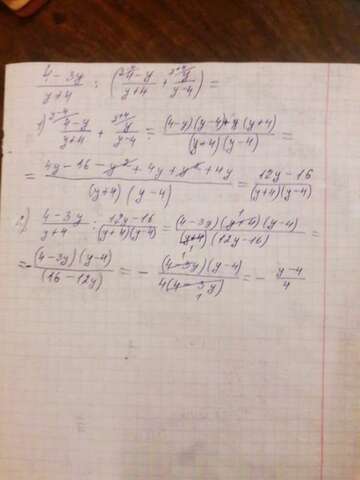 (4-3y)/(y+4) : ((4-y)/(y+4) + y/(y-4)) =
1) (4-y)/(y+4) + y/(y-4) = ((4-y)(y-4)+y(y+4))/((y+4)(y-4)) =
= (4y-16-y²+4y+y²+4y)/((y+4)(y-4)) = (12y-16)/((y+4)(y-4))
2) (4-3y)/(y+4) : (12y-16)/((y+4)(y-4)) = ((4-3y)(y+4)(y-4))/((y+4)(12y-16)) =
= ((4-3y)(y-4))/(16-12y) = - ((4-3y)(y-4))/(4(4-3y)) = - (y-4)/4